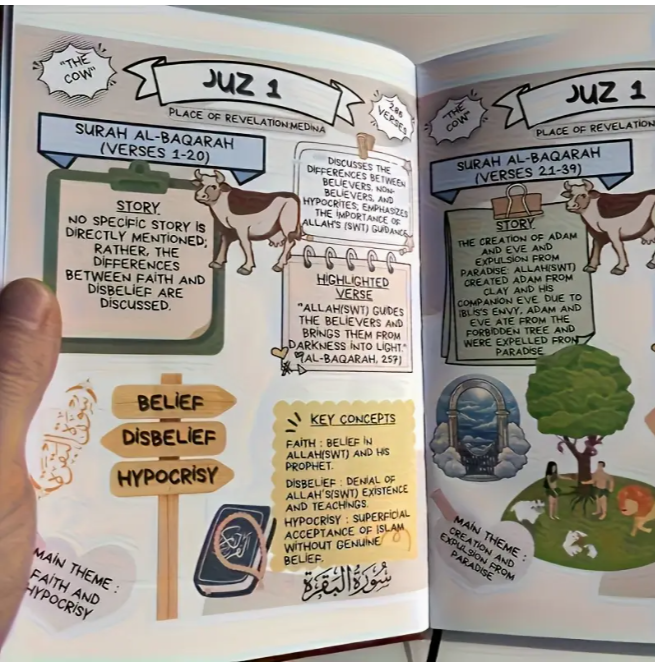 "THE
COW"
JUZ 1
286
VERSES
PLACE OF REVELATION:MEDINA
SURAH AL-BAQARAH
(VERSES 1-20)
STORY
NO SPECIFIC STORY IS
DIRECTLY MENTIONED;
RATHER, THE
DIFFERENCES
BETWEEN FAITH AND
DISBELIEF ARE
DISCUSSED.
DISCUSSES THE
DIFFERENCES BETWEEN
BELIEVERS, NON-
BELIEVERS, AND
HYPOCRITES; EMPHASIZES
THE IMPORTANCE OF
ALLAH'S (SWT) GUIDANCE
HIGHLIGHTED
VERSE
"ALLAH(SWT) GUIDES
THE BELIEVERS AND
BRINGS THEM FROM
DARKNESS INTO LIGHT."
(AL-BAQARAH, 257)
BELIEF
DISBELIEF
HYPOCRISY
KEY CONCEPTS
FAITH : BELIEF IN
ALLAH(SWT) AND HIS
PROPHET.
DISBELIEF : DENIAL OF
ALLAH'S(SWT) EXISTENCE
AND TEACHINGS.
HYPOCRISY : SUPERFICIAL
ACCEPTANCE OF ISLAM
WITHOUT GENUINE
BELIEF.
سُورَةُ الْبَقَرَةِ
MAIN THEME :
FAITH AND
HYPOCRISY
"THE
COW"
JUZ 1
PLACE OF REVELATION
SURAH AL-BAQARAH
(VERSES 21-39)
STORY
THE CREATION OF ADAM
AND EVE AND
EXPULSION FROM
PARADISE: ALLAH(SWT)
CREATED ADAM FROM
CLAY AND HIS
COMPANION EVE. DUE TO
IBLIS'S ENVY, ADAM AND
EVE ATE FROM THE
FORBIDDEN TREE AND
WERE EXPELLED FROM
PARADISE.
MAIN THEME :
CREATION AND
EXPULSION FROM
PARADISE